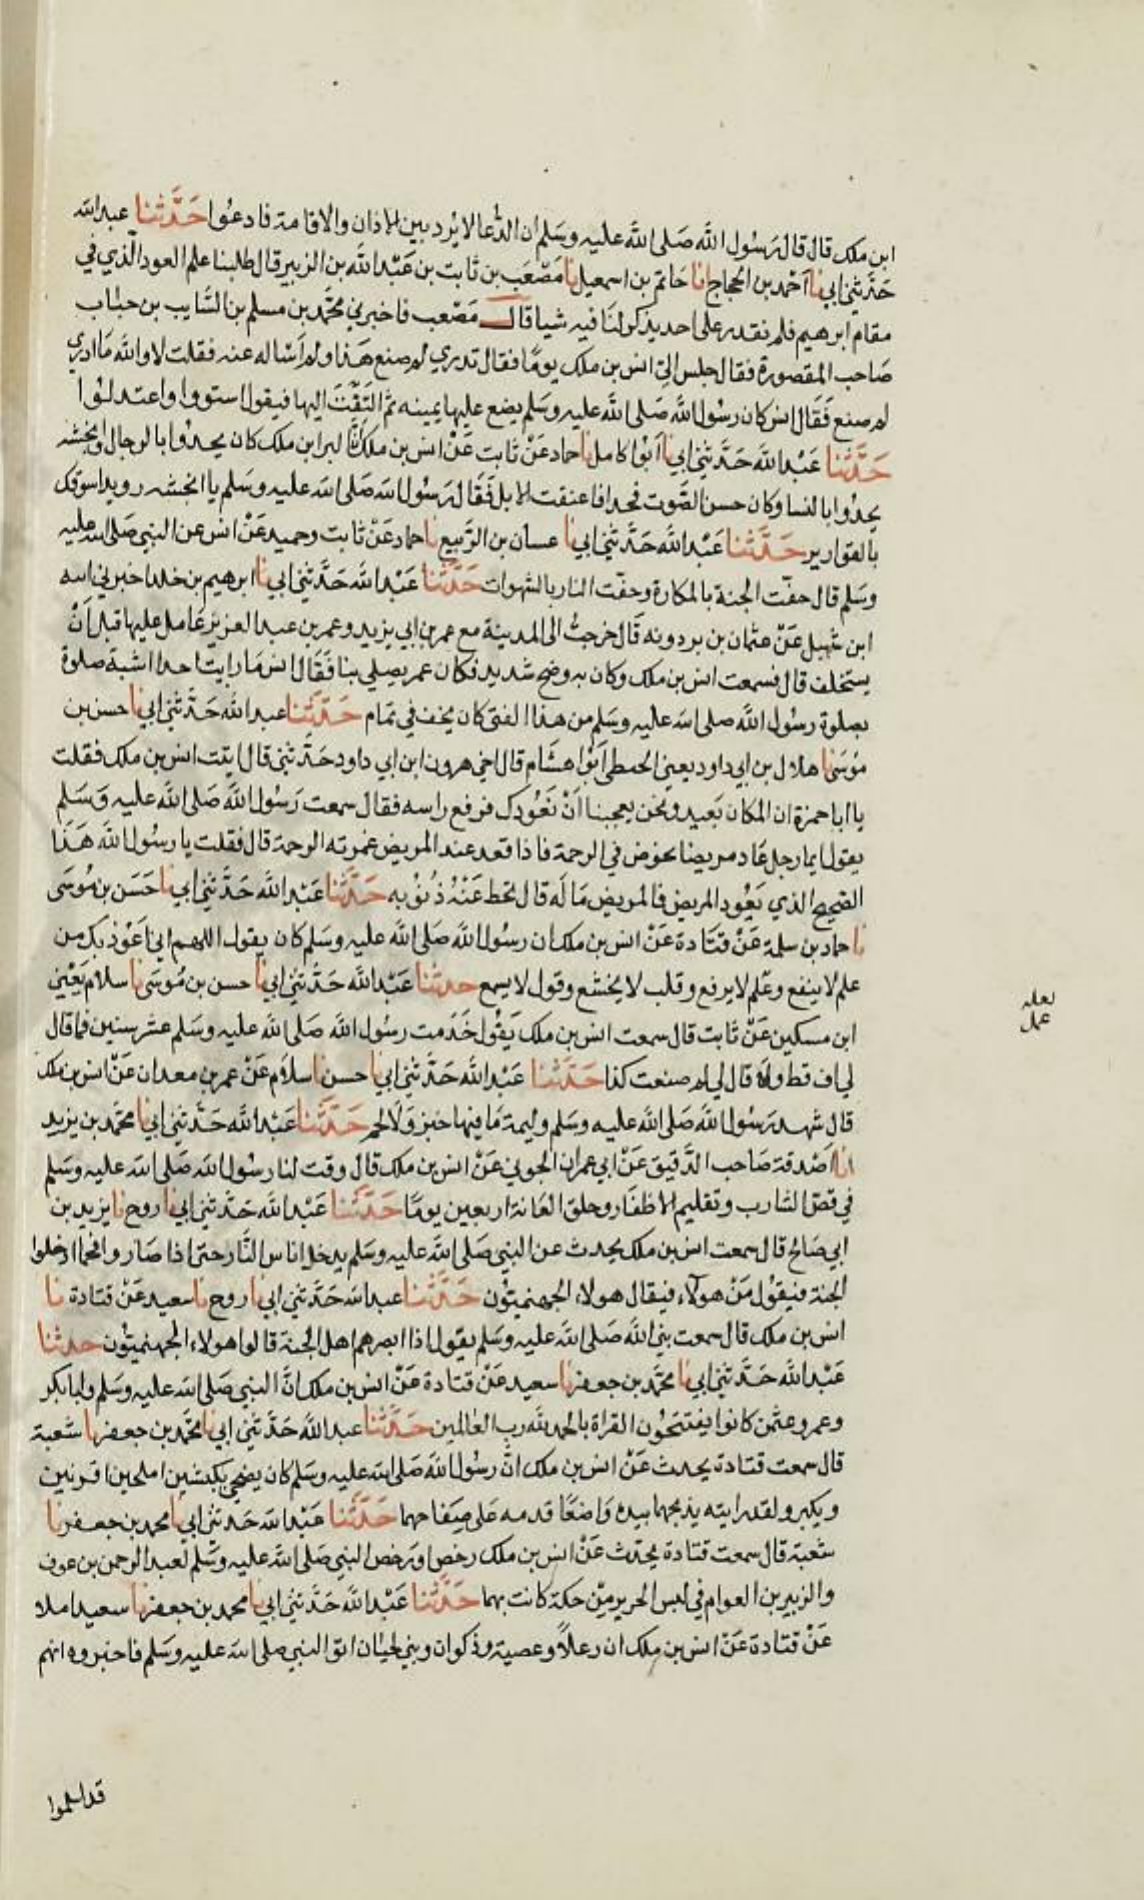 ابن ملك قال قال رسول الله صلى الله عليه وسلم ان الدعا لا يرد بين الاذان والاقامة فادعوا حدثنا عبد الله
حدثني ابي نا احمد بن الحجاج انا حاتم بن اسمعيل نا مصعب بن ثابت بن عبد الله بن الزبير قال طلبنا علم العود الذي في
مقام ابرهيم فلم نقدر على احد يذكر لنا فيه شيا قال مصعب فاخبرني محمد بن مسلم بن السايب بن خباب
صاحب المقصورة فقال جلس الي انس بن ملك يوما فقال تدري لم صنع هذا ولم اساله عنه فقلت لا والله ما ادري
لم صنع فقال انس كان رسول الله صلى الله عليه وسلم يضع عليها يمينه ثم التفت الينا فيقول استووا واعتدلوا
حدثنا عبد الله حدثني ابي نا ابو كامل نا حماد عن ثابت عن انس بن ملك ان البرا بن ملك كان يحدوا بالرجال وانجشه
يحدوا بالنسا وكان حسن الصوت فحدا فاعنقت الابل فقال رسول الله صلى الله عليه وسلم يا انجشه رويدا سوقك
بالقوارير حدثنا عبد الله حدثني ابي نا غسان بن الربيع نا حماد عن ثابت وحميد عن انس عن النبي صلى الله عليه
وسلم قال حفت الجنة بالمكارة وحفت النار بالشهوات حدثنا عبد الله حدثني ابي نا ابرهيم بن خلدا خبرني اميه
ابن شبل عن عثمان بن بردويه قال خرجت الى المدينة مع عمر بن ابي يزيد وعمر بن عبد العزيز عامل عليها قبل ان
يستخلف قال فسمعت انس بن ملك وكان به وضح شديد فكان عمر يصلي بنا فقال انس ما رايت احدا اشبة صلوة
بصلوة رسول الله صلى الله عليه وسلم من هذا الفتى كان يخفف في تمام حدثنا عبد الله حدثني ابي نا حسن بن
موسى نا هلال بن ابي داود يعني الحبطي ابو هشام قال اخي هرون ابن ابي داود حدثني قال اتيت انس بن ملك فقلت
يا ابا حمزة ان المكان بعيد ونحن يعجبنا ان نعودك فرفع راسه فقال سمعت رسول الله صلى الله عليه وسلم
يقول ايما رجل عاد مريضا يخوض في الرحمة فاذا قعد عند المريض غمرته الرحمة قال فقلت يا رسول الله هذا
الصحيح الذي يعود المريض فالمريض ما له قال تحط عنه ذنوبه حدثنا عبد الله حدثني ابي نا حسن بن موسى
نا حماد بن سلمة عن قتادة عن انس بن ملك ان رسول الله صلى الله عليه وسلم كان يقول اللهم اني اعوذ بك من
علم لا ينفع وعلم لا يرفع وقلب لا يخشع وقول لا يسمع حدثنا عبد الله حدثني ابي نا حسن بن موسى نا سلام يعني
لعله
عمل
ابن مسكين عن ثابت قال سمعت انس بن ملك يقول خدمت رسول الله صلى الله عليه وسلم عشر سنين فما قال
لي اف قط ولا قال لي لم صنعت كذا حدثنا عبد الله حدثني ابي نا حسن نا سلام عن عمر بن معدان عن انس بن ملك
قال شهد رسول الله صلى الله عليه وسلم وليمة ما فيها خبز ولا لحم حدثنا عبد الله حدثني ابي نا محمد بن يزيد
انا صدقة صاحب الدقيق عن ابي عمران الجوني عن انس بن ملك قال وقت لنا رسول الله صلى الله عليه وسلم
في قص الشارب وتقليم الاظفار وحلق العانة اربعين يوما حدثنا عبد الله حدثني ابي نا روح نا يزيد بن
ابي صالح قال سمعت انس بن ملك يحدث عن النبي صلى الله عليه وسلم يدخل اناس النار حتى اذا صاروا فحما ادخلوا
الجنة فيقول من هولاء فيقال هولاء الجهنميون حدثنا عبد الله حدثني ابي نا روح نا سعيد عن قتادة نا
انس بن ملك قال سمعت نبي الله صلى الله عليه وسلم يقول اذا ابصرهم اهل الجنة قالوا هولاء الجهنميون حدثنا
عبد الله حدثني ابي نا محمد بن جعفر نا سعيد عن قتادة عن انس بن ملك ان النبي صلى الله عليه وسلم وابا بكر
وعمر وعثمن كانوا يفتتحون القراة بالحمد لله رب العالمين حدثنا عبد الله حدثني ابي نا محمد بن جعفر نا شعبة
قال سمعت قتادة يحدث عن انس بن ملك ان رسول الله صلى الله عليه وسلم كان يضحي بكبشين املحين اقرنين
ويكبر ولقد رايته يذبحهما بيده واضعا قدمه على صفاحهما حدثنا عبد الله حدثني ابي نا محمد بن جعفر نا
شعبة قال سمعت قتادة يحدث عن انس بن ملك رخص او رخص النبي صلى الله عليه وسلم لعبد الرحمن بن عوف
والزبير بن العوام في لبس الحرير من حكة كانت بهما حدثنا عبد الله حدثني ابي نا محمد بن جعفر نا سعيد املا
عن قتادة عن انس بن ملك ان رعلا وعصية وذكوان وبني لحيان اتوا النبي صلى الله عليه وسلم فاخبروه انهم
قد اسلموا